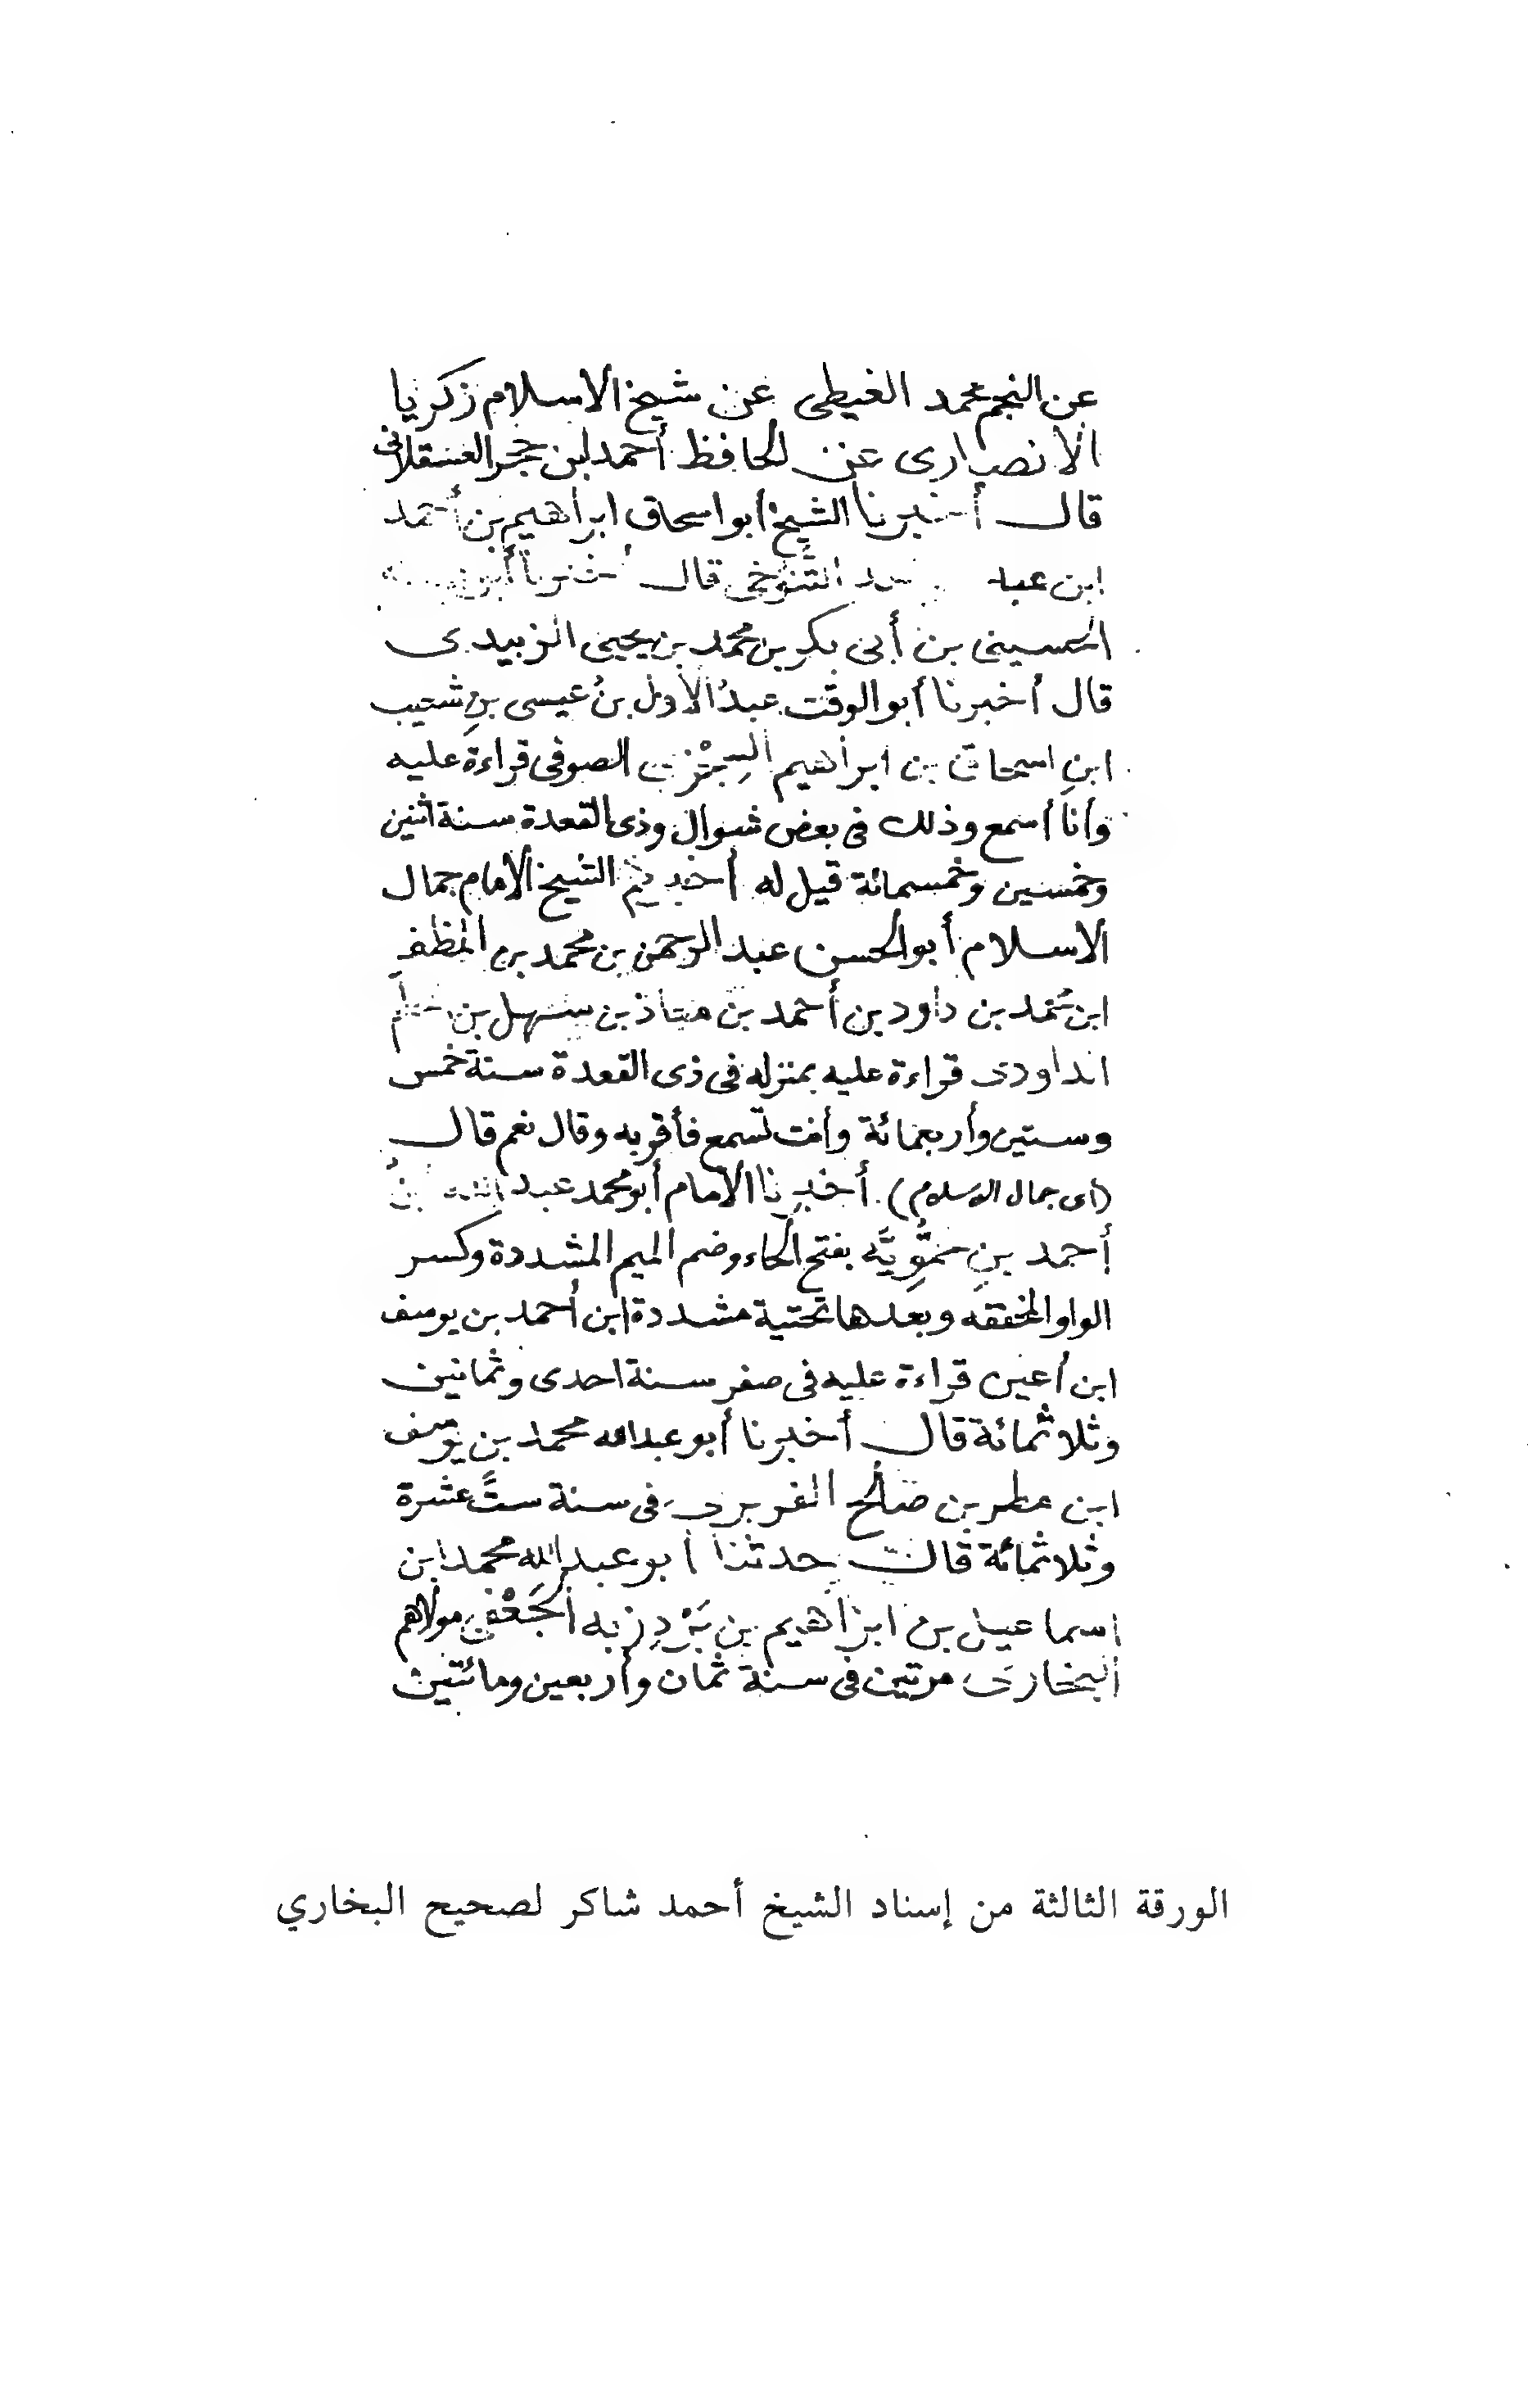 عن النجم محمد الغيطى عن شيخ الاسلام زكريا
الأنصارى عن الحافظ أحمد ابن حجر العسقلانى
قال أخبرنا الشيخ أبو اسحاق ابراهيم بن أحمد
ابن عبد التَّنوخى قال
الحسينى بن أبى بكر بن محمد بن يحيى الزبيدى
قال أخبرنا أبو الوقت عبدُ الأول بنُ عيسى بنِ شعيب
ابنِ اسحاق بن ابراهيم السِجْزى الصوفى قراءة عليه
وأنا أسمع وذلك فى بعض شوال وذى القعدة سنة اثنين
وخمسين وخمسمائة قيل له أخبركم الشيخ الأمام جمال
الاسلام أبو الحسن عبد الرحمن بن محمد بن المظفر
ابن محمد بن داود بن أحمد بن معاذ بن سهل بن
الداودى قراءة عليه بمنزله فى ذى القعدة سنة خمس
وستين وأربعمائة وأنت تسمع فأقر به وقال نعم قال
(أى جمال الاسلام) أخبرنا الأمام أبو محمد عبد الله بنُ
أحمد بنِ حَمُّوِيَّه بفتح الحاء وضم الميم المشددة وكسر
الواو المخففه وبعدها تحتية مشددة ابن أحمد بن يوسف
ابن أعين قراءة عليه فى صفر سنة احدى وثمانين
وثلاثمائة قال أخبرنا أبو عبد الله محمد بن يوسف
ابن مطر بن صالح الفربرى فى سنة ستَّ عشرة
وثلاثمائة قال حدثنا أبو عبد الله محمد ابن
اسماعيل بن ابراهيم بن بَرْدِزبه الجَعْفى مولاهم
البخارى مرتين فى سنة ثمان وأربعين ومائتين
الورقة الثالثة من إسناد الشيخ أحمد شاكر لصحيح البخاري